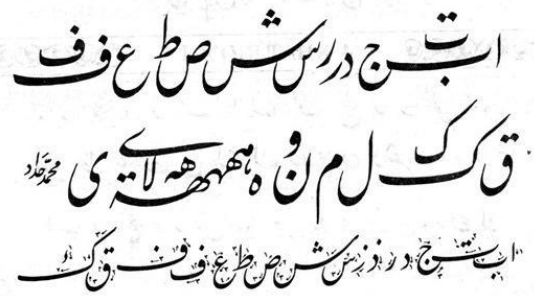 ا ب ت ج د ر رس ش ص ط ع ف ف
ق ک ک ل م ن و ه ههه هه لا ة ی
ا ب ت ج د ر ذ ز س ش ص ط ع ف ف ق ک